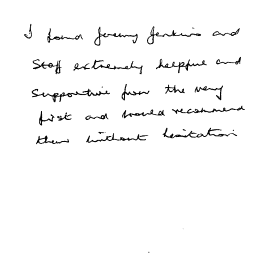 I found Jeremy Jenkins and
Staff extremely helpful and
supportive from the very
first and would recommend
them without hesitation